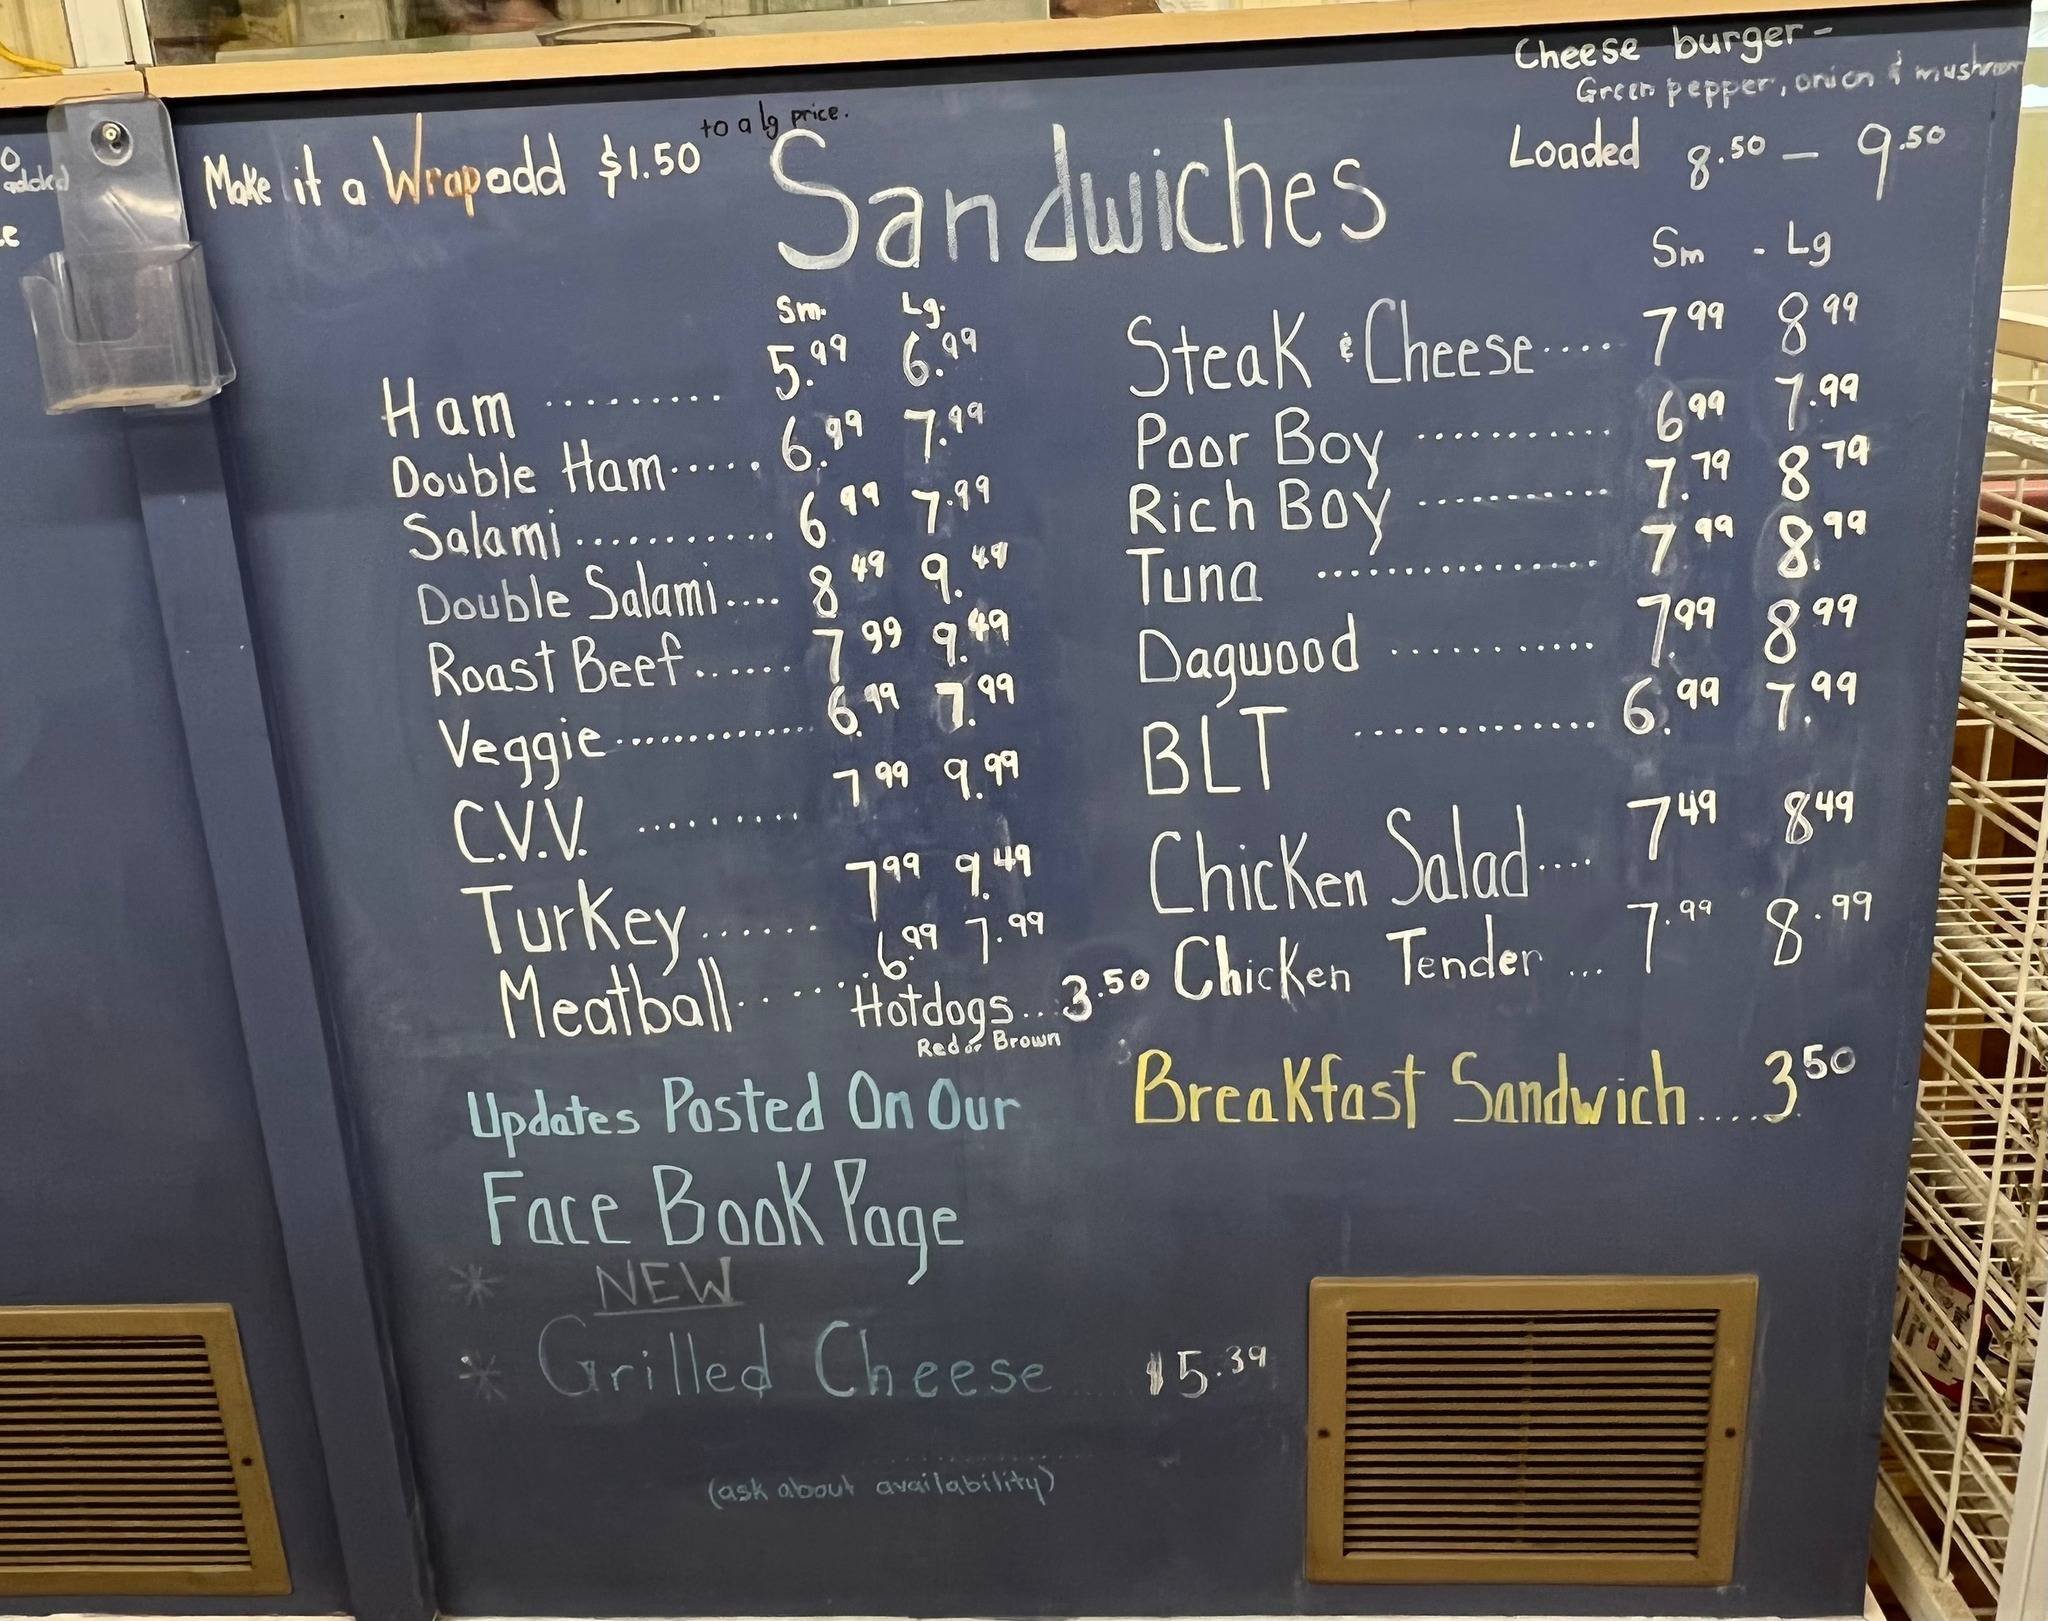 to a lg price.
Make it a Wrap add $1.50
Sandwiches
Cheese burger -
Green pepper, onion & mushroom
Loaded 8.50 - 9.50
added
Sm. Lg.
Ham ......... 5.99 6.99
Double Ham ..... 6.99 7.99
Salami ........... 6.99 7.99
Double Salami .... 8.49 9.49
Roast Beef ...... 7.99 9.49
Veggie ............. 6.99 7.99
C.V.V. ......... 7.99 9.99
Turkey ...... 7.99 9.49
Meatball ..... 6.99 7.99
Hotdogs ... 3.50
Red or Brown
Sm - Lg
Steak & Cheese .... 7.99 8.99
Poor Boy ........... 6.99 7.99
Rich Boy ........... 7.79 8.79
Tuna ................ 7.99 8.99
Dagwood ........... 7.99 8.99
BLT ............. 6.99 7.99
Chicken Salad .... 7.49 8.49
Chicken Tender ... 7.99 8.99
Breakfast Sandwich .... 3.50
Updates Posted On Our
Face Book Page
* NEW
* Grilled Cheese $5.39
(ask about availability)